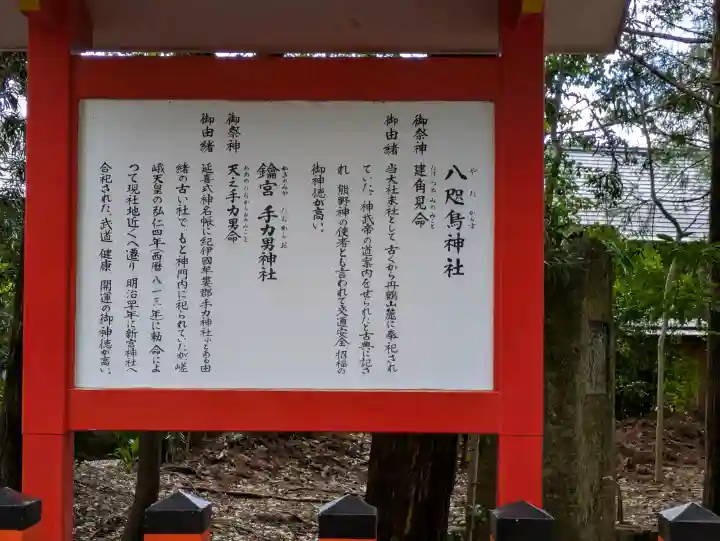 八咫烏神社
やたがらす
御祭神　建角見命
たけつぬみのみこと
御由緒　当大社末社として古くから丹鶴山麓に奉祀され
ていた。神武帝の道案内をせられたと古典に記さ
れ　熊野神の使者とも言われて交通安全　招福の
御神徳が高い。
鑰宮　手力男神社
かぎのみや　たぢからお
御祭神　天之手力男命
あめのたぢからおのみこと
御由緒　延喜式神名帳に紀伊國牟婁郡手力神社とある由
緒の古い社で、もと神門内に祀られていたが嵯
峨天皇の弘仁四年（西暦八一三）年に勅命によ
つて現社地近くへ遷り　明治早年に新宮神社へ
合祀された。武道　健康　開運の御神徳が高い。